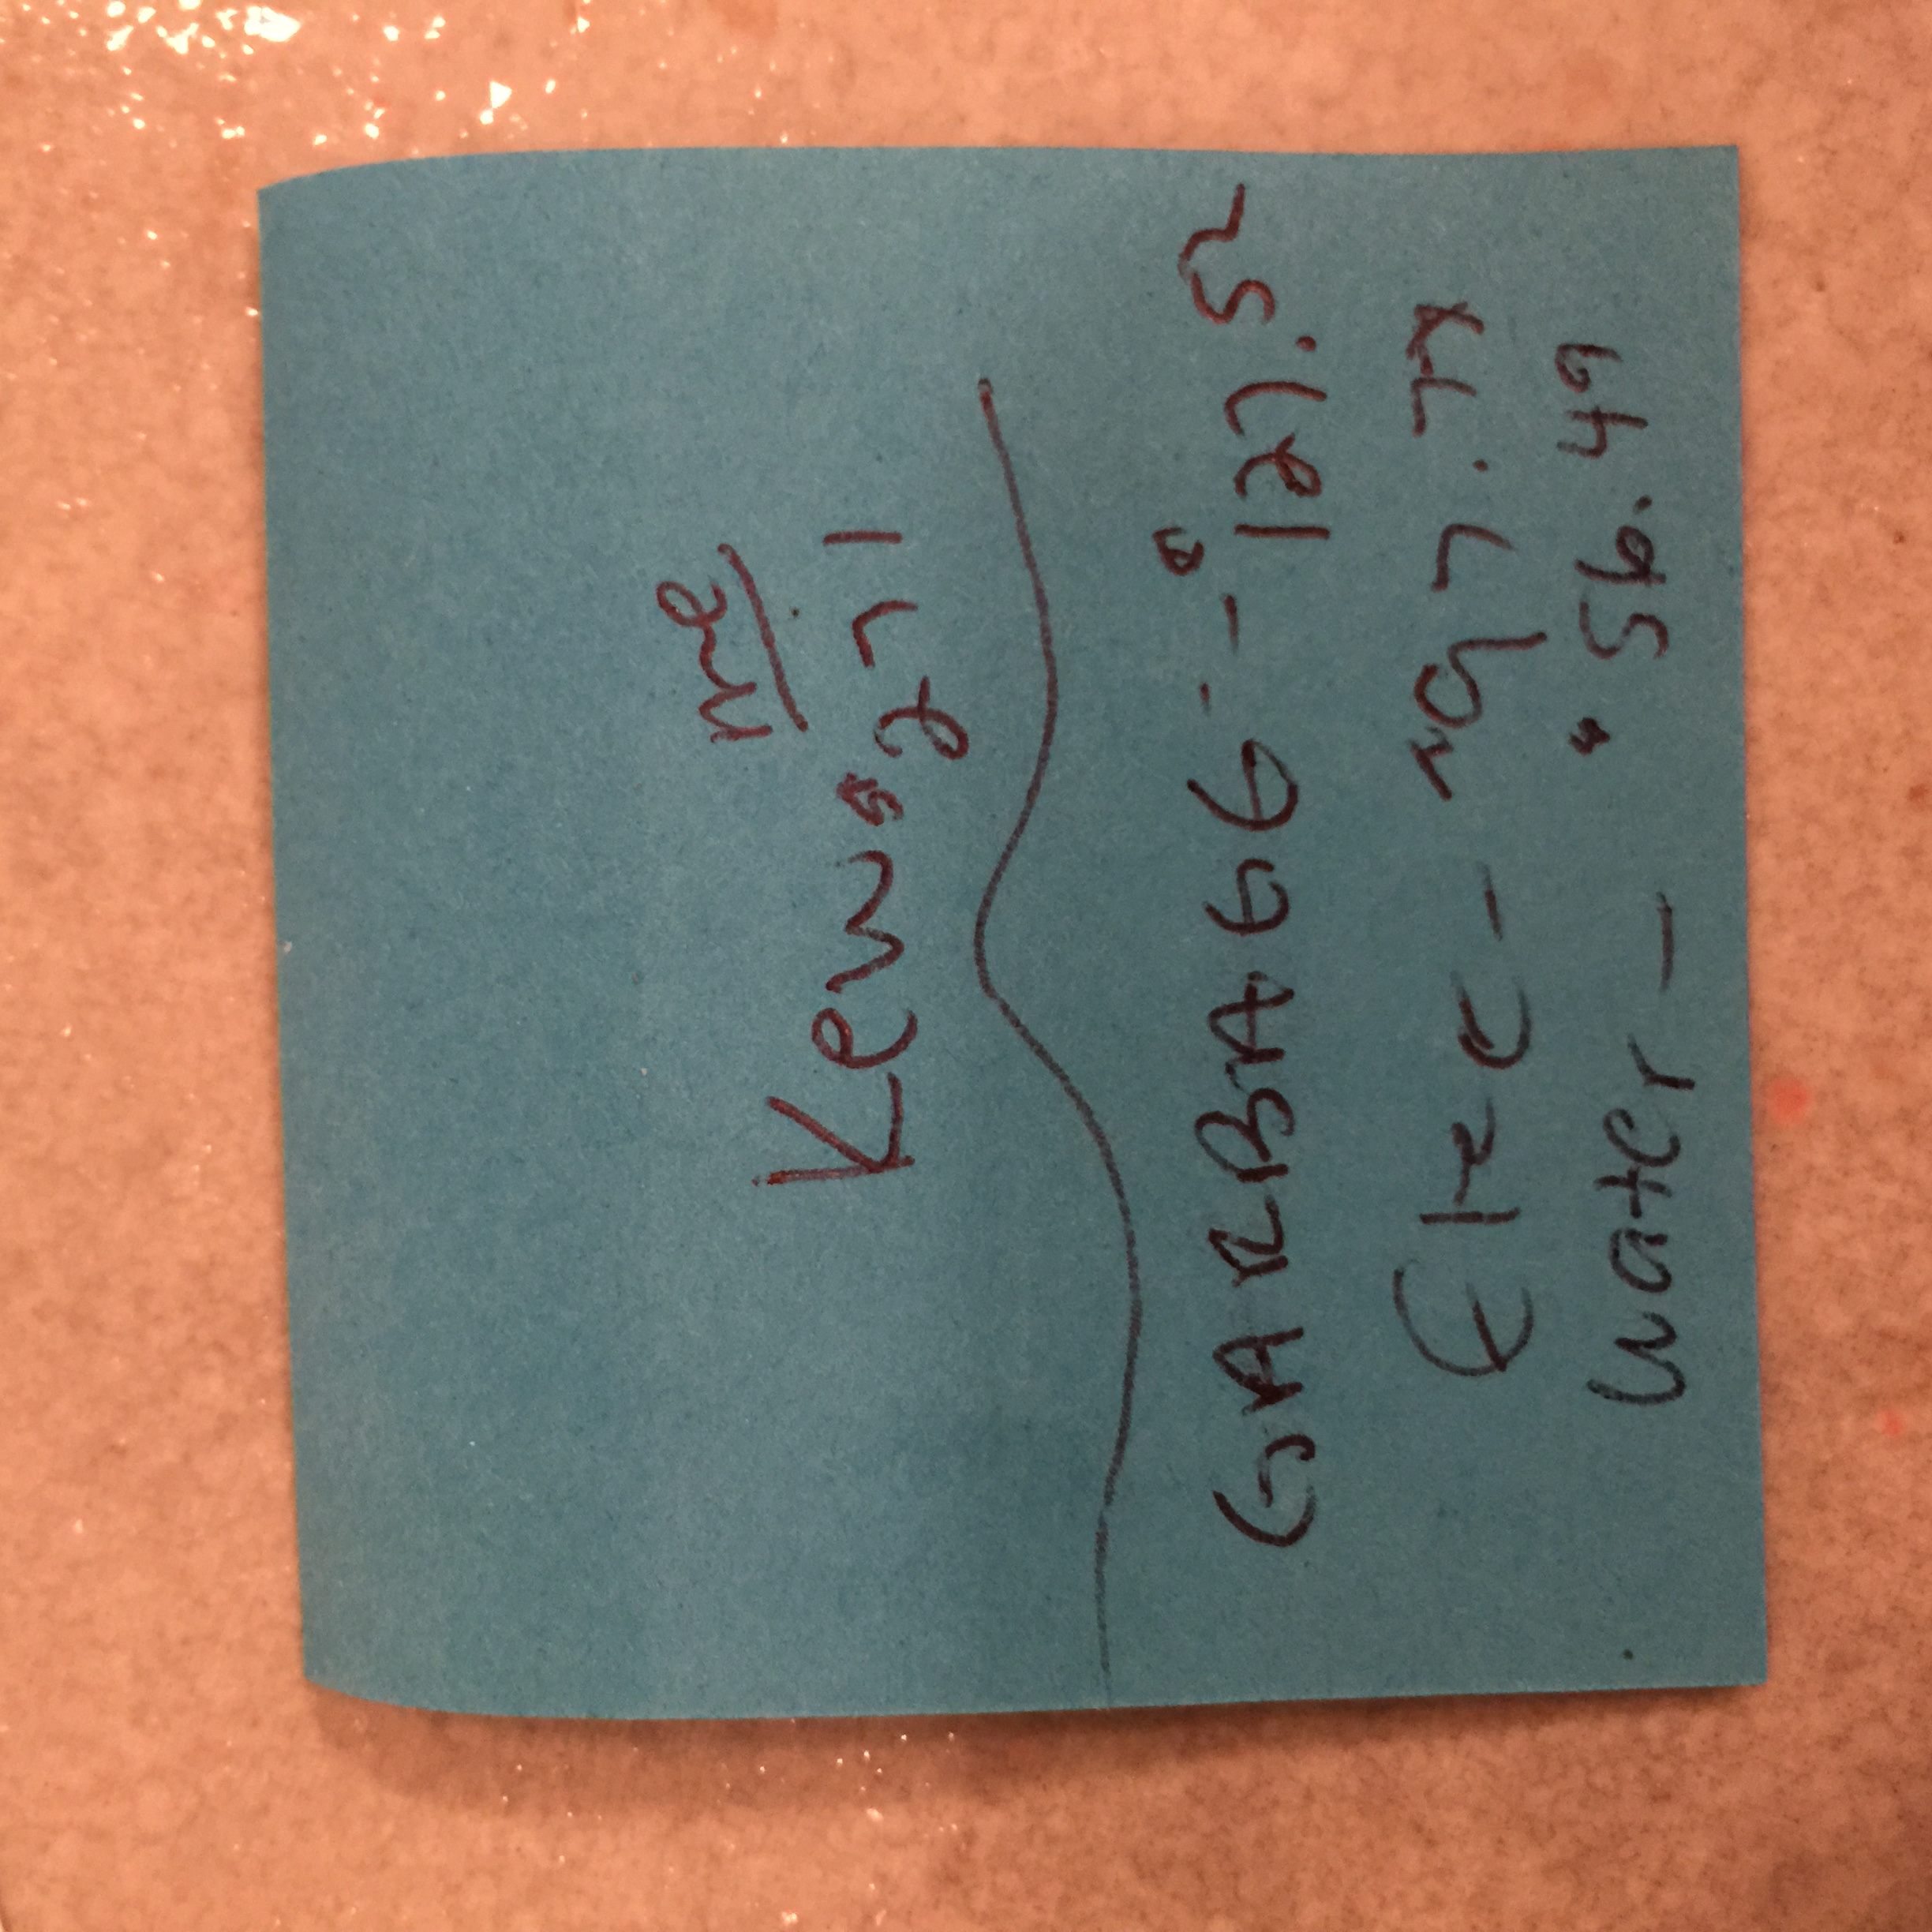 me
Kew $271
GARBAGG -- $127.52
Elec - $97.77
Water - $56.49